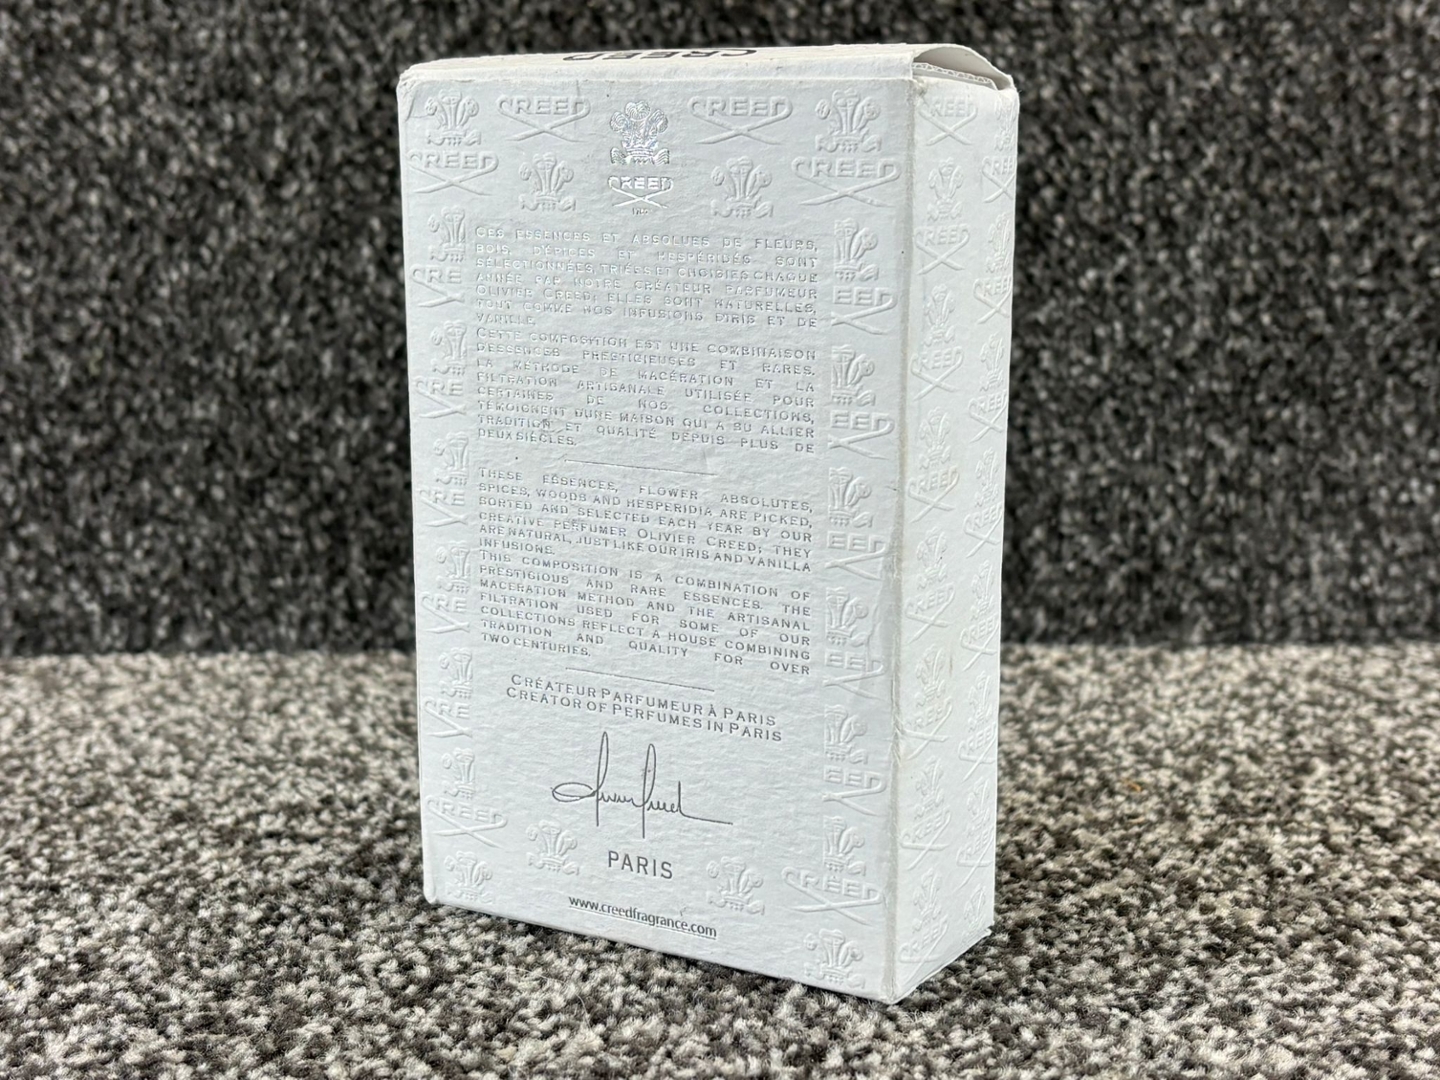 CREED
CREED CREED
CREED CREED CREED
CES ESSENCES ET ABSOLUES DE FLEURS,
BOIS, D'ÉPICES ET HESPÉRIDÉS SONT
SÉLECTIONNÉES, TRIÉES ET CHOISIES CHAQUE
ANNÉE PAR NOTRE CRÉATEUR PARFUMEUR
OLIVIER CREED; ELLES SONT NATURELLES,
TOUT COMME NOS INFUSIONS D'IRIS ET DE
VANILLE.
CETTE COMPOSITION EST UNE COMBINAISON
D'ESSENCES PRESTIGIEUSES ET RARES.
LA MÉTHODE DE MACÉRATION ET LA
FILTRATION ARTISANALE UTILISÉE POUR
CERTAINES DE NOS COLLECTIONS,
TÉMOIGNENT D'UNE MAISON QUI A SU ALLIER
TRADITION ET QUALITÉ DEPUIS PLUS DE
DEUX SIÈCLES.
THESE ESSENCES, FLOWER ABSOLUTES,
SPICES, WOODS AND HESPERIDIA ARE PICKED,
SORTED AND SELECTED EACH YEAR BY OUR
CREATIVE PERFUMER OLIVIER CREED; THEY
ARE NATURAL, JUST LIKE OUR IRIS AND VANILLA
INFUSIONS.
THIS COMPOSITION IS A COMBINATION OF
PRESTIGIOUS AND RARE ESSENCES. THE
MACERATION METHOD AND THE ARTISANAL
FILTRATION USED FOR SOME OF OUR
COLLECTIONS REFLECT A HOUSE COMBINING
TRADITION AND QUALITY FOR OVER
TWO CENTURIES.
CRÉATEUR PARFUMEUR À PARIS
CREATOR OF PERFUMES IN PARIS
PARIS
www.creedfragrance.com